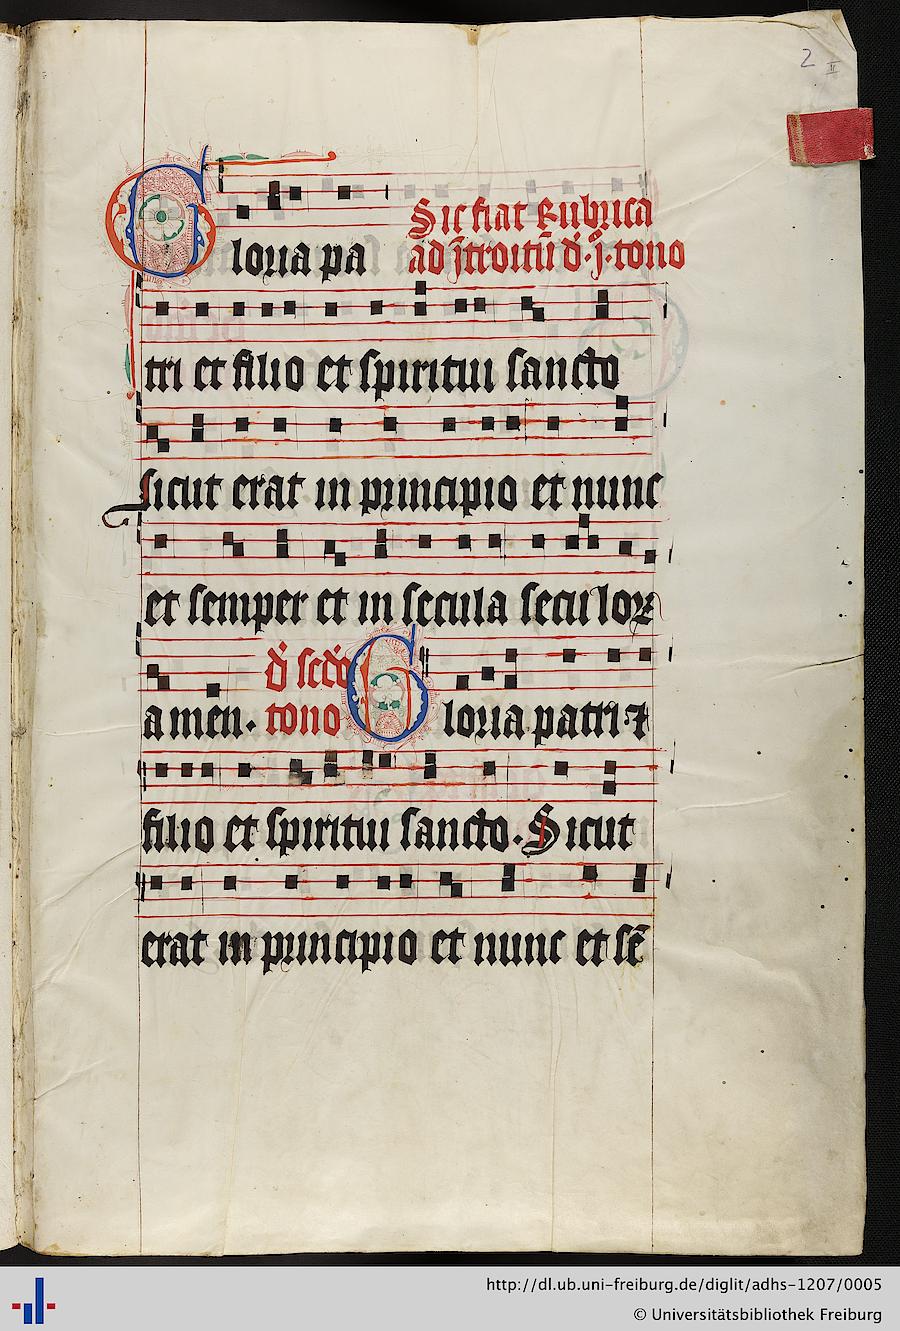 2
II
Sic fiat Rubrica
Gloria pa ad ĩtroitũ d' .j. tono
tri et filio et spiritui sancto
Sicut erat in principio et nunc
et semper et in secula seculoꝝ
d' scdo
amen. tono Gloria patri ⁊
filio et spiritui sancto. Sicut
erat in principio et nunc et sē
http://dl.ub.uni-freiburg.de/diglit/adhs-1207/0005
© Universitätsbibliothek Freiburg